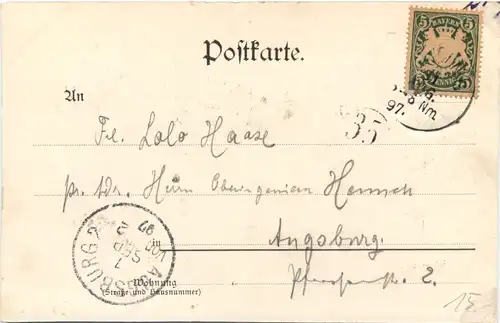 Postkarte.
5 BAYERN 5
97.
35
An
Frl. Lolo Haase
pr. Adr. Herrn Oberingenieur
Augsburg.
in
AUGSBURG 2
1 SEP
VOR
97
2.
Wohnung
(Straße und Hausnummer)
15